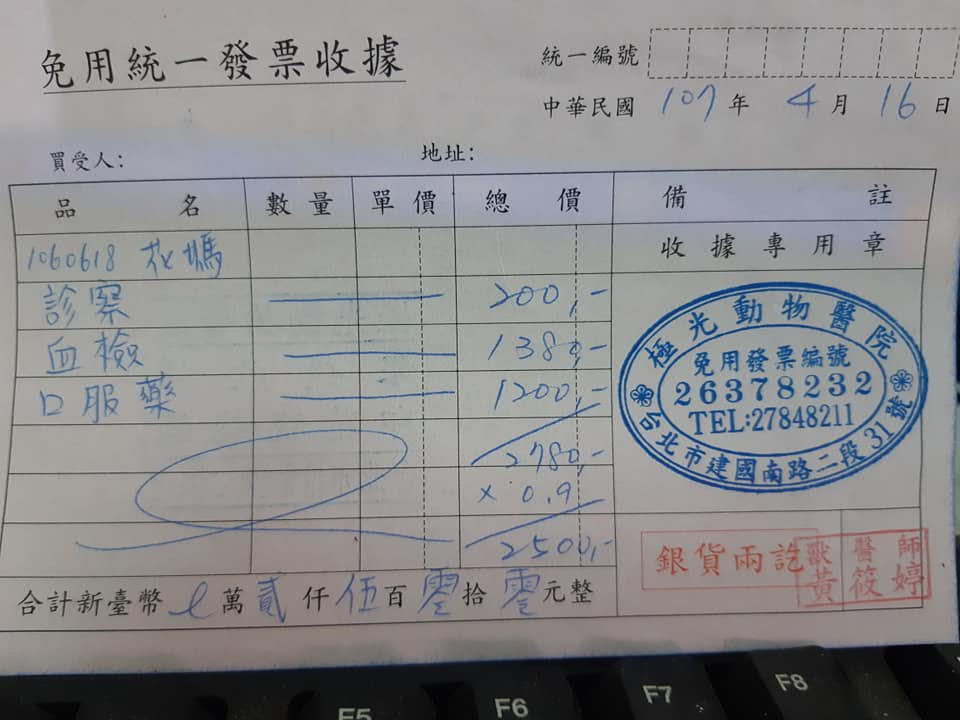 免用統一發票收據
統一編號
中華民國 107 年 4 月 16 日
買受人: 地址:
品名 數量 單價 總價 備註
收據專用章
1060618 花媽
診察 200,-
血檢 1380,-
口服藥 1200,-
2780,-
× 0.9
2500,-
合計新臺幣 萬 貳 仟 伍 百 零 拾 零 元整
極光動物醫院
免用發票編號
26378232
TEL:27848211
台北市建國南路二段31號
銀貨兩訖
獸醫師
黃筱婷
F5 F6 F7 F8